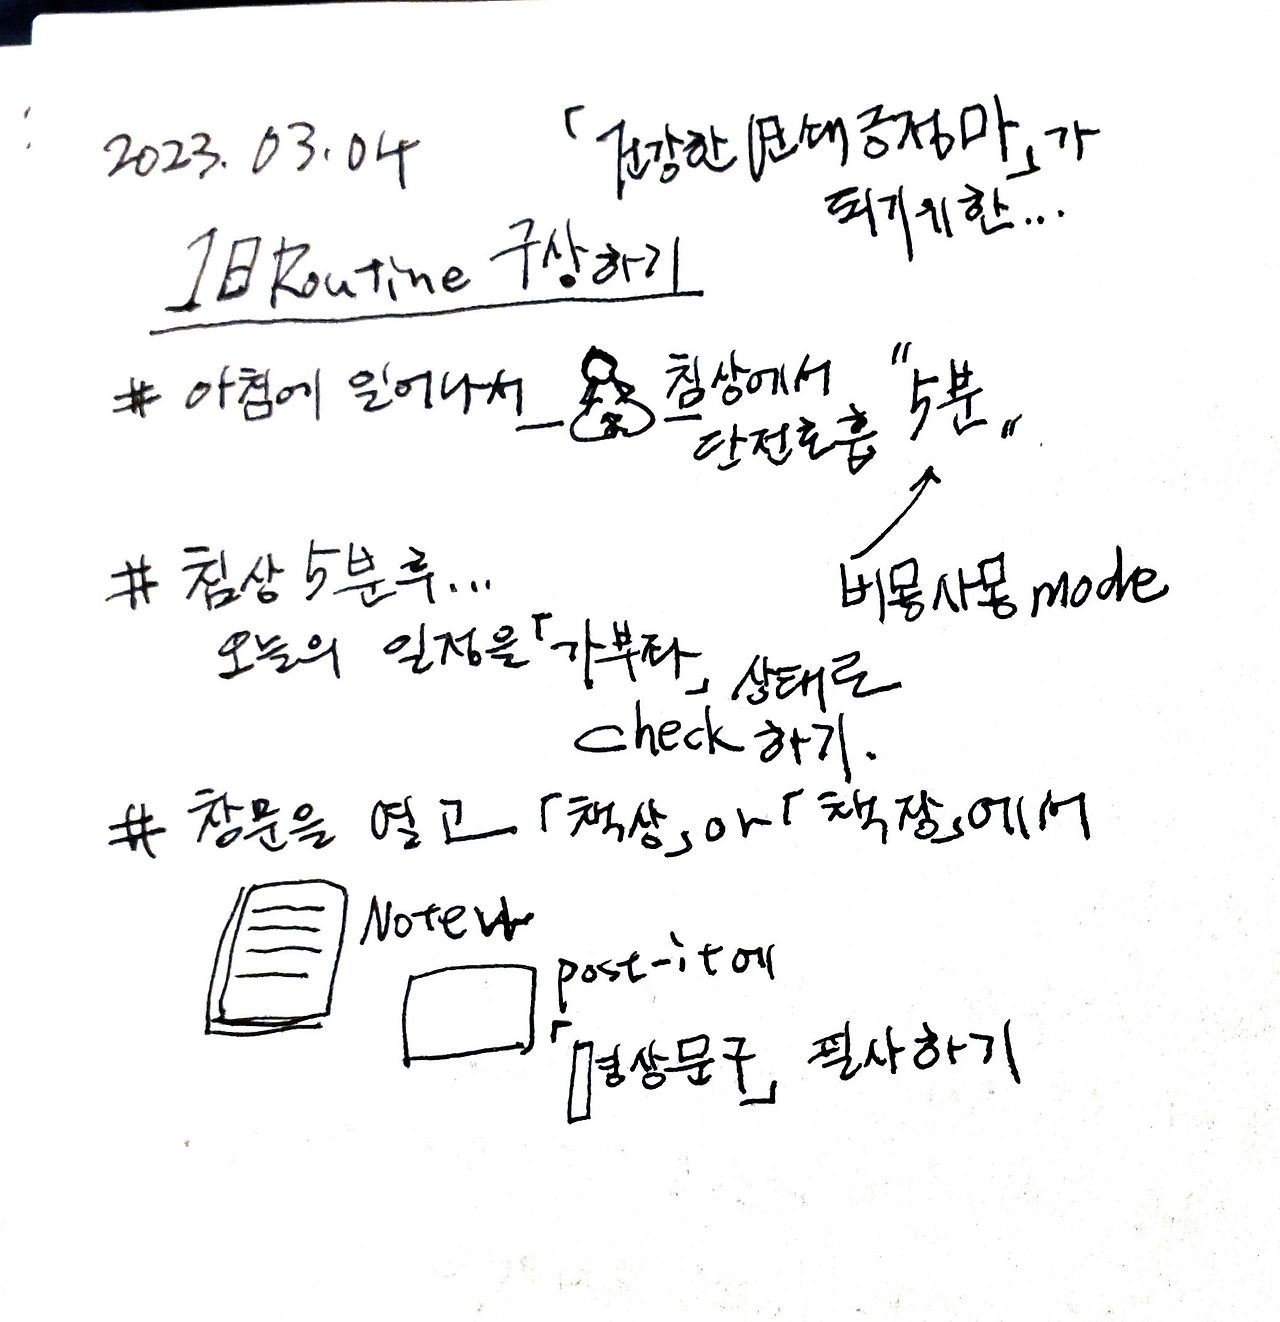 2023.03.04
「건강한 가
되기위한...
1日 Routine 구상하기
# 아침에 일어나서 _ _ 침상에서 "5분"
단전호흡
비몽사몽 mode
# 침상 5분후...
오늘의 일정을 「가부좌」 상태로
check 하기.
# 창문을 열고 「책상」 or 「책장」에서
Note나
post-it에
「명상문구」 필사하기